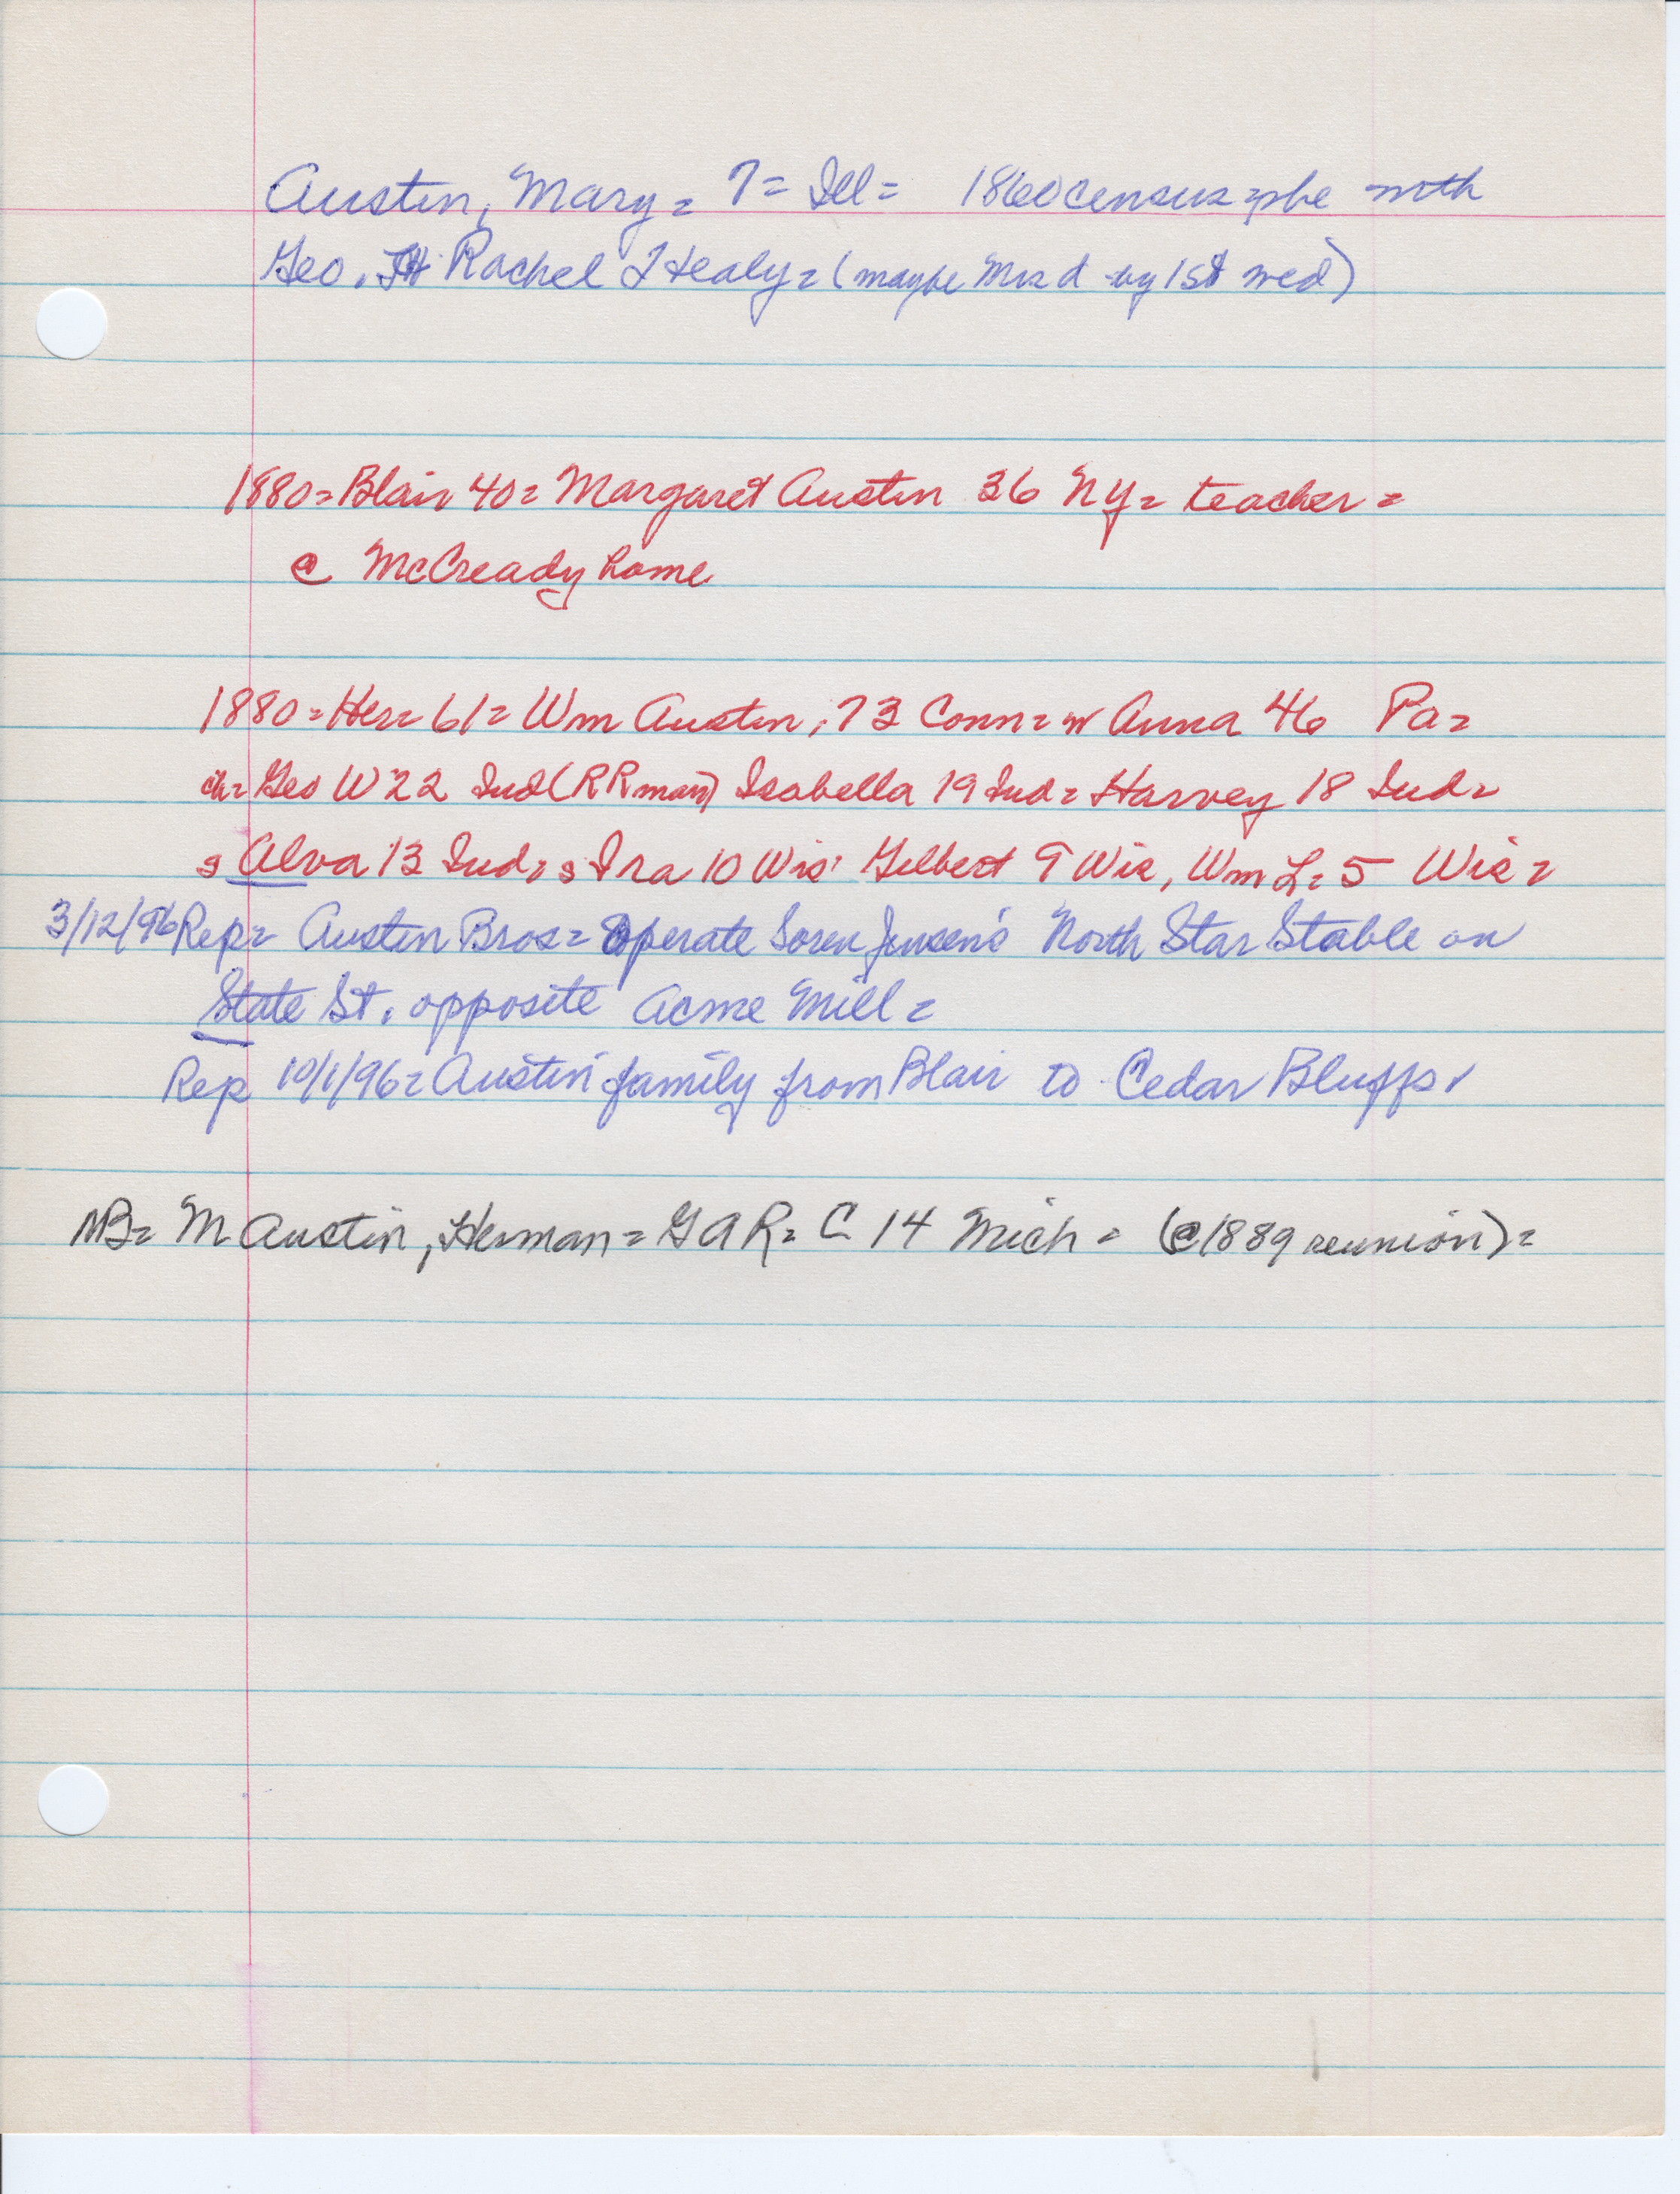 Austin, Mary = 7 = Ill = 1860 census = she with
Geo. Rachel Healy = (maybe Mrs d by 1st wed)
1880 = Blair 40 = Margaret Austin 36 NY = teacher =
@ McCready home
1880 = Her = 61 = Wm Austin, 73 Conn = w Anna 46 Pa =
ch = Geo W 22 Ind (RR man) Isabella 19 Ind = Harvey 18 Ind =
s Alva 13 Ind, s Ira 10 Wis' Gilbert 9 Wis, Wm L = 5 Wis =
3/12/96 Rep = Austin Bros = Operate Soren Jensen's North Star Stable on
State St. opposite Acme Mill =
Rep 10/1/96 = Austin family from Blair to Cedar Bluffs
NB = M Austin, Herman = GAR = C 14 Mich = (@ 1889 reunion) =